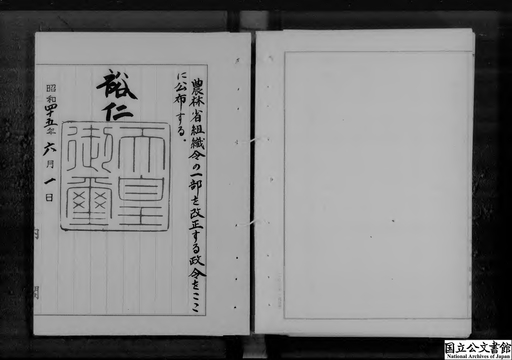 農林省組織令の一部を改正する政令をここ
に公布する。
裕仁
天皇
御璽
昭和四十五年六月一日
内
閣
国立公文書館
National Archives of Japan